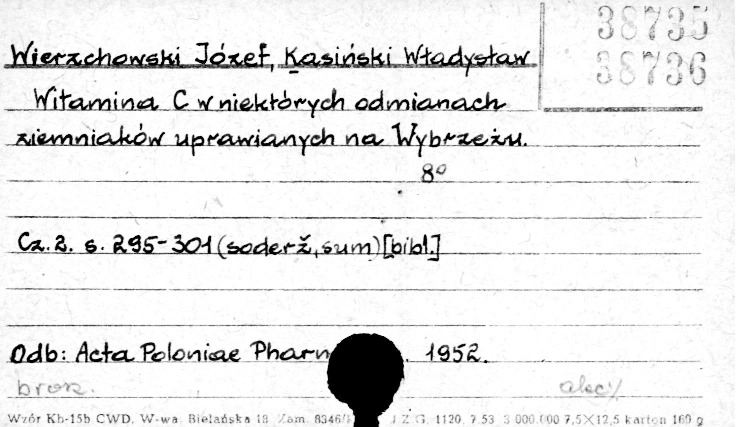 38735
38736
Wierzchowski Józef, Kasiński Władysław
Witamina C w niektórych odmianach
ziemniaków uprawianych na Wybrzeżu.
8º
Cz. 2. s. 295-301 (soderž, sum) [bibl.]
Odb: Acta Poloniae 1952.
brosz.
Wzór Kb-15b CWD. W-wa. Bielańska 18 Zam. 8346/ Z.G. 1120. 7.53. 3 000.000 7,5×12,5 karton 160 g